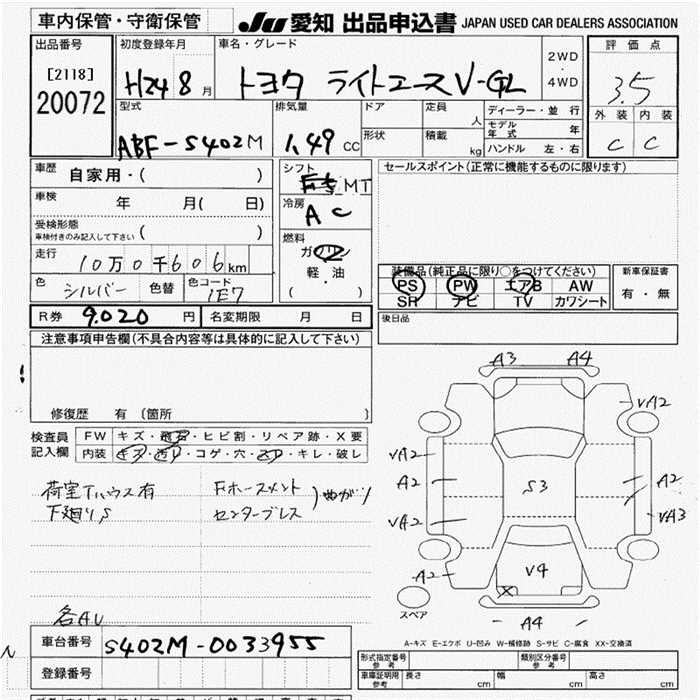 車内保管・守衛保管
JU 愛知 出品申込書 JAPAN USED CAR DEALERS ASSOCIATION
出品番号
[2118]
20072
初度登録年月
H24 8月
車名・グレード
トヨタ ライトエースV-GL
2WD
・
4WD
評価点
3.5
外装 内装
C C
型式
ABF-S402M
排気量
1.49 CC
ドア
形状
定員
人
積載
kg
ディーラー・並 行
モデル年式 年
ハンドル 左・右
車歴 自家用・( )
車検 年 月( 日)
受検形態
車検付きのみ記入して下さい ( )
走行 10万0千606km
色 シルバー 色替 色コード 1E7
シフト
MT
冷房
AC
燃料
ガソリン
軽・油
( )
セールスポイント(正常に機能するものに限ります)
装備品(純正品に限り○をつけてください)
PS PW エアB AW
SR ナビ TV カワシート
新車保証書
有・無
後日品
R券 9.020 円 名変期限 月 日
注意事項申告欄(不具合内容等は具体的に記入して下さい)
修復歴 有 〔箇所 〕
検査員
記入欄
FW キズ・飛石・ヒビ割・リペア跡・X要
内装 キズ・汚れ・コゲ・穴・スレ・キレ・破レ
荷室Tハウス有
下廻りS
Fホースメント
センターブレス
曲がり
各AU
A3 A4
VA2
VA2
A2
VA2
A2
S3
V4
X
A2
VA3
A4
スペア
A-キズ E-エクボ U-凹み W-補修跡 S-サビ C-腐食 XX-交換済
車台番号 S402M-0033955
登録番号
形式指定番号
参考
類別区分番号
参考
車庫証明用
参考
長さ cm 幅 cm 高さ cm